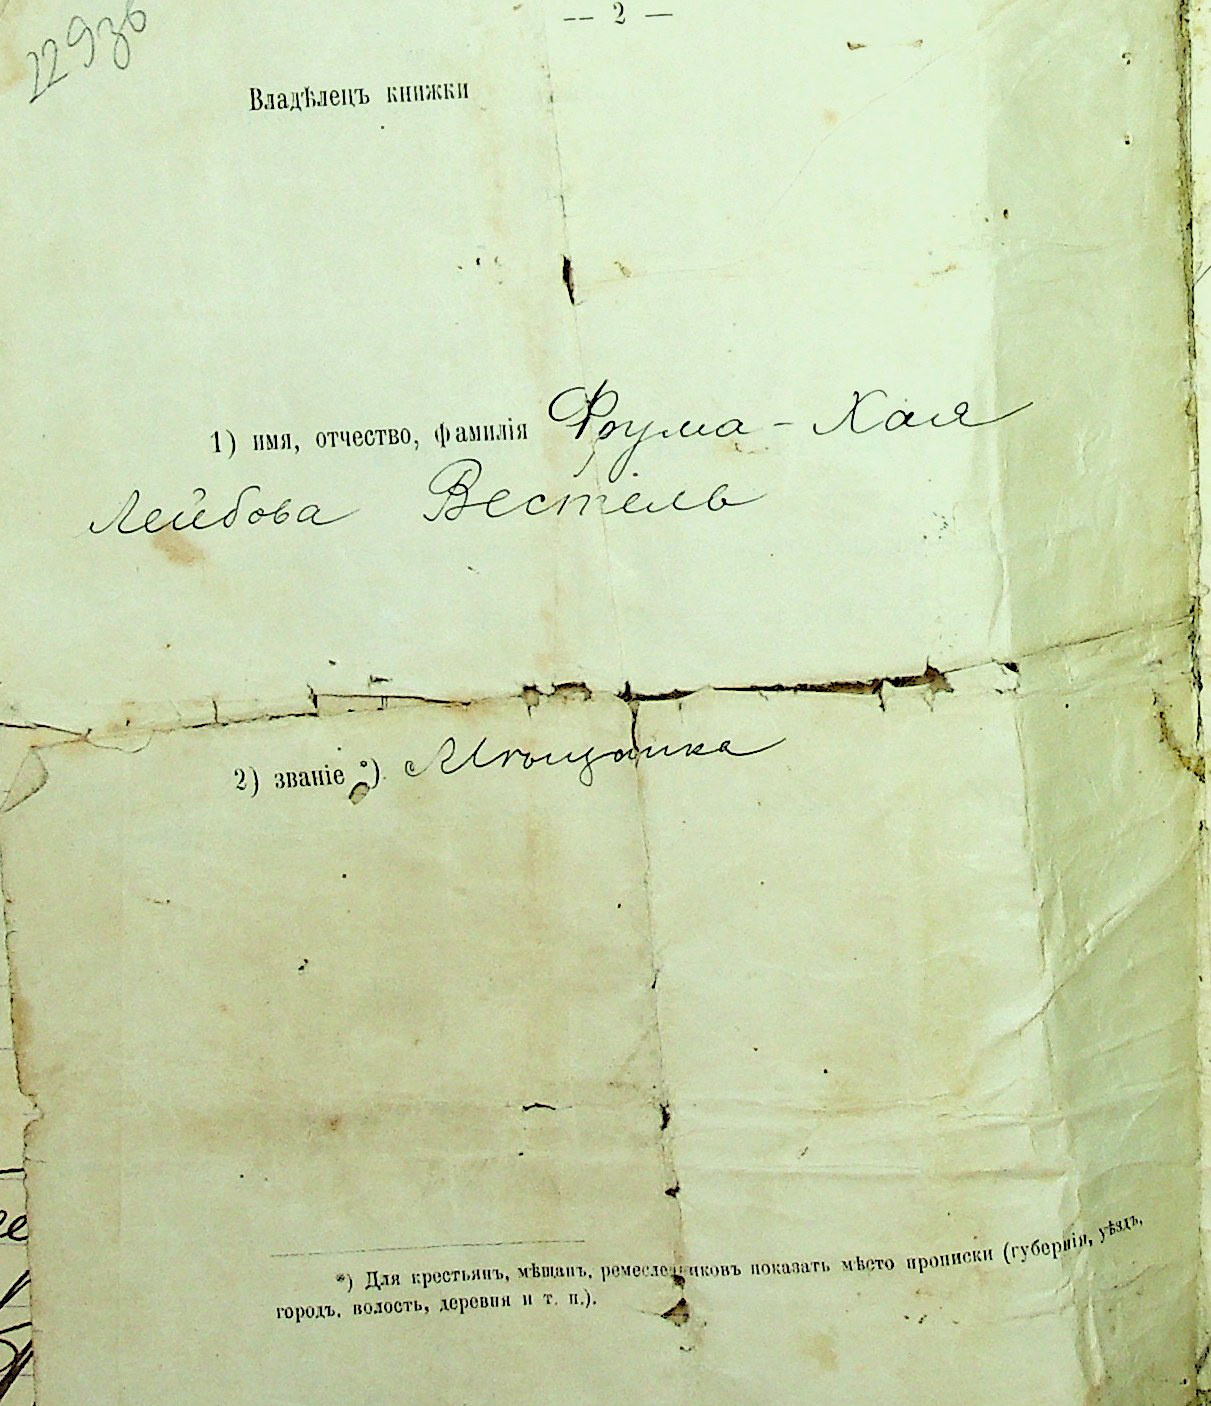 -- 2 —
Владѣлецъ книжки
1) имя, отчество, фамилія Фрума - Хая
Лейбова Вестель
2) званіе *) Мѣщанка
*) Для крестьянъ, мѣщанъ, ремесленниковъ показать мѣсто прописки (губернія, уѣздъ,
городъ, волость, деревня и т. п.).